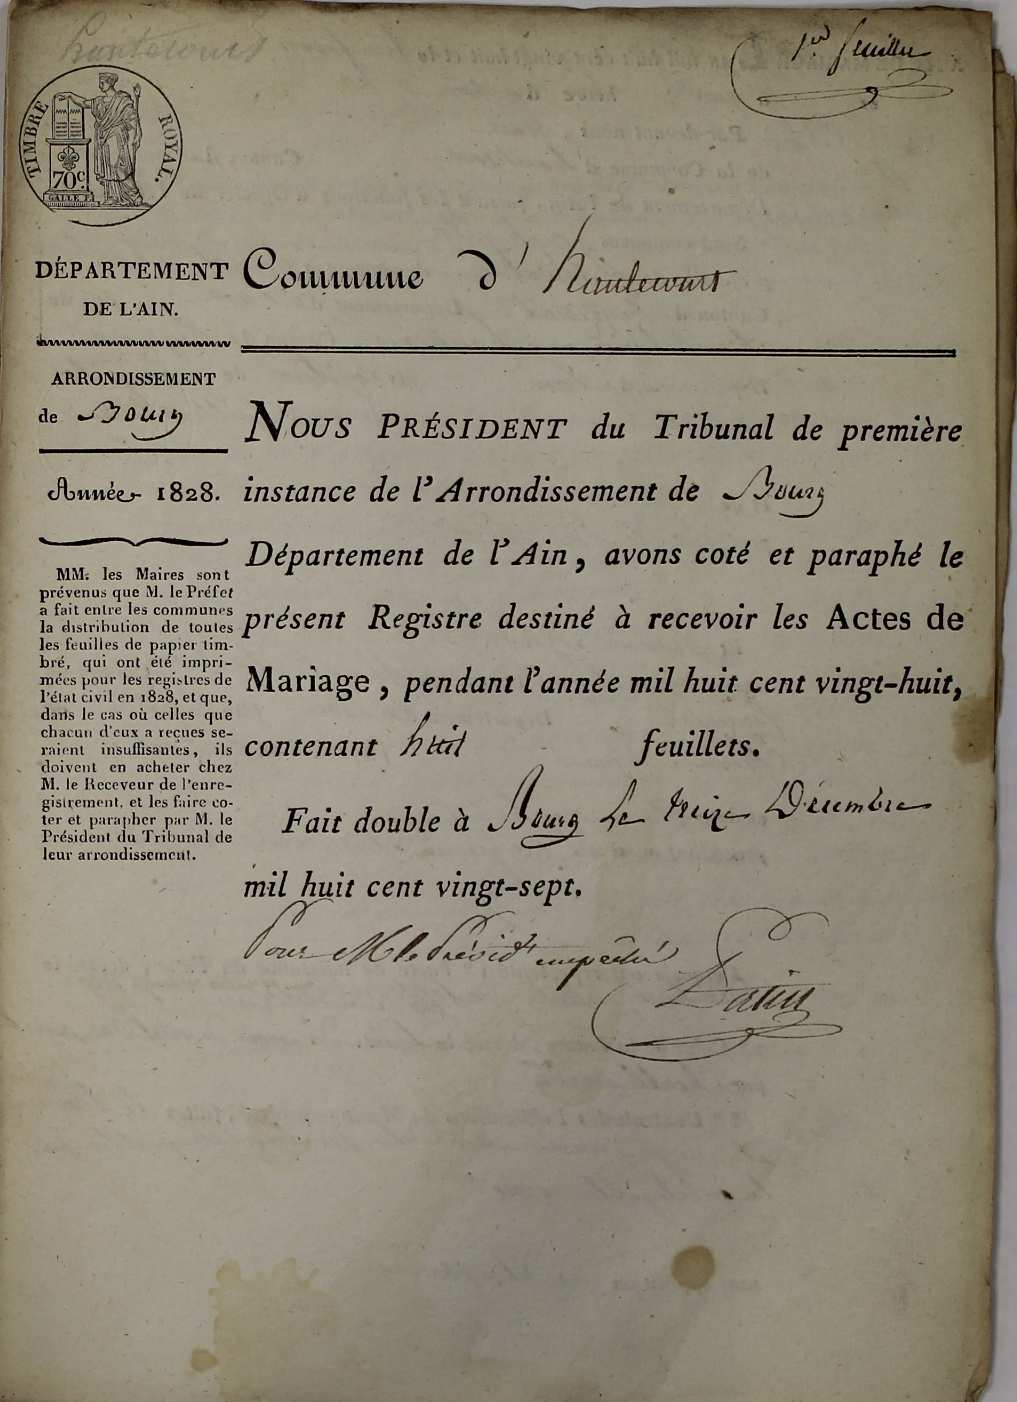 hautecourt
1er feuillet
TIMBRE ROYAL.
70c.
GALLE F.
DÉPARTEMENT
DE L'AIN.
Commune d' hautecourt
ARRONDISSEMENT
de Bourg
Année 1828.
MM. les Maires sont
prévenus que M. le Préfet
a fait entre les communes
la distribution de toutes
les feuilles de papier tim-
bré, qui ont été impri-
mées pour les registres de
l'état civil en 1828, et que,
dans le cas où celles que
chacun d'eux a reçues se-
raient insuffisantes, ils
doivent en acheter chez
M. le Receveur de l'enre-
gistrement, et les faire co-
ter et parapher par M. le
Président du Tribunal de
leur arrondissement.
NOUS PRÉSIDENT du Tribunal de première
instance de l'Arrondissement de Bourg
Département de l'Ain, avons coté et paraphé le
présent Registre destiné à recevoir les Actes de
Mariage, pendant l'année mil huit cent vingt-huit,
contenant huit feuillets.
Fait double à Bourg Le treize Décembre
mil huit cent vingt-sept.
Pour M. le Présidt empêché